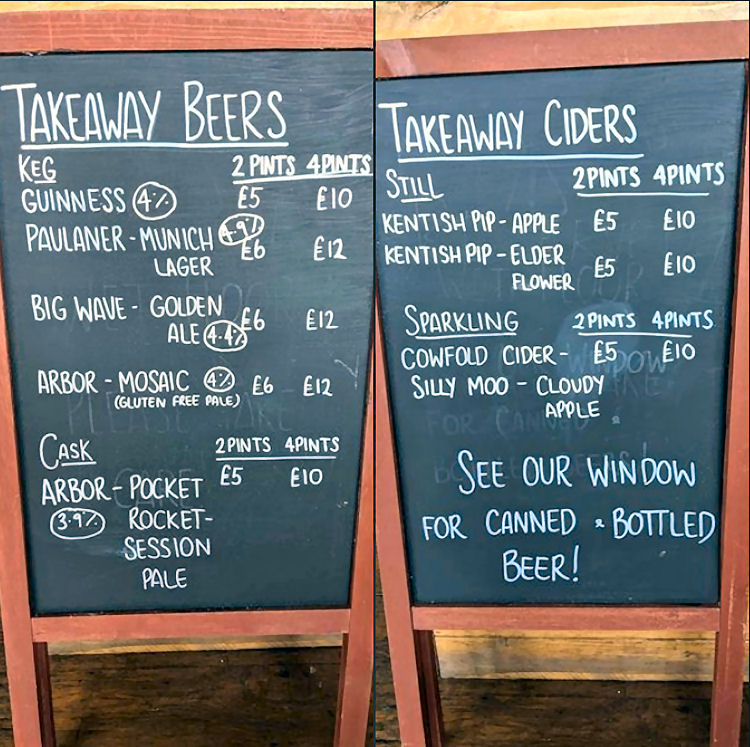 TAKEAWAY BEERS
KEG 2 PINTS 4PINTS
GUINNESS 4% £5 £10
PAULANER - MUNICH 4.9% £6 £12
LAGER
BIG WAVE - GOLDEN £6 £12
ALE 4.4%
ARBOR - MOSAIC 4% £6 £12
(GLUTEN FREE PALE)
CASK 2PINTS 4PINTS
ARBOR - POCKET £5 £10
3.9% ROCKET-
SESSION
PALE
TAKEAWAY CIDERS
STILL 2PINTS 4PINTS
KENTISH PIP - APPLE £5 £10
KENTISH PIP - ELDER £5 £10
FLOWER
SPARKLING 2PINTS 4PINTS
COWFOLD CIDER - £5 £10
SILLY MOO - CLOUDY
APPLE
SEE OUR WINDOW
FOR CANNED & BOTTLED
BEER!